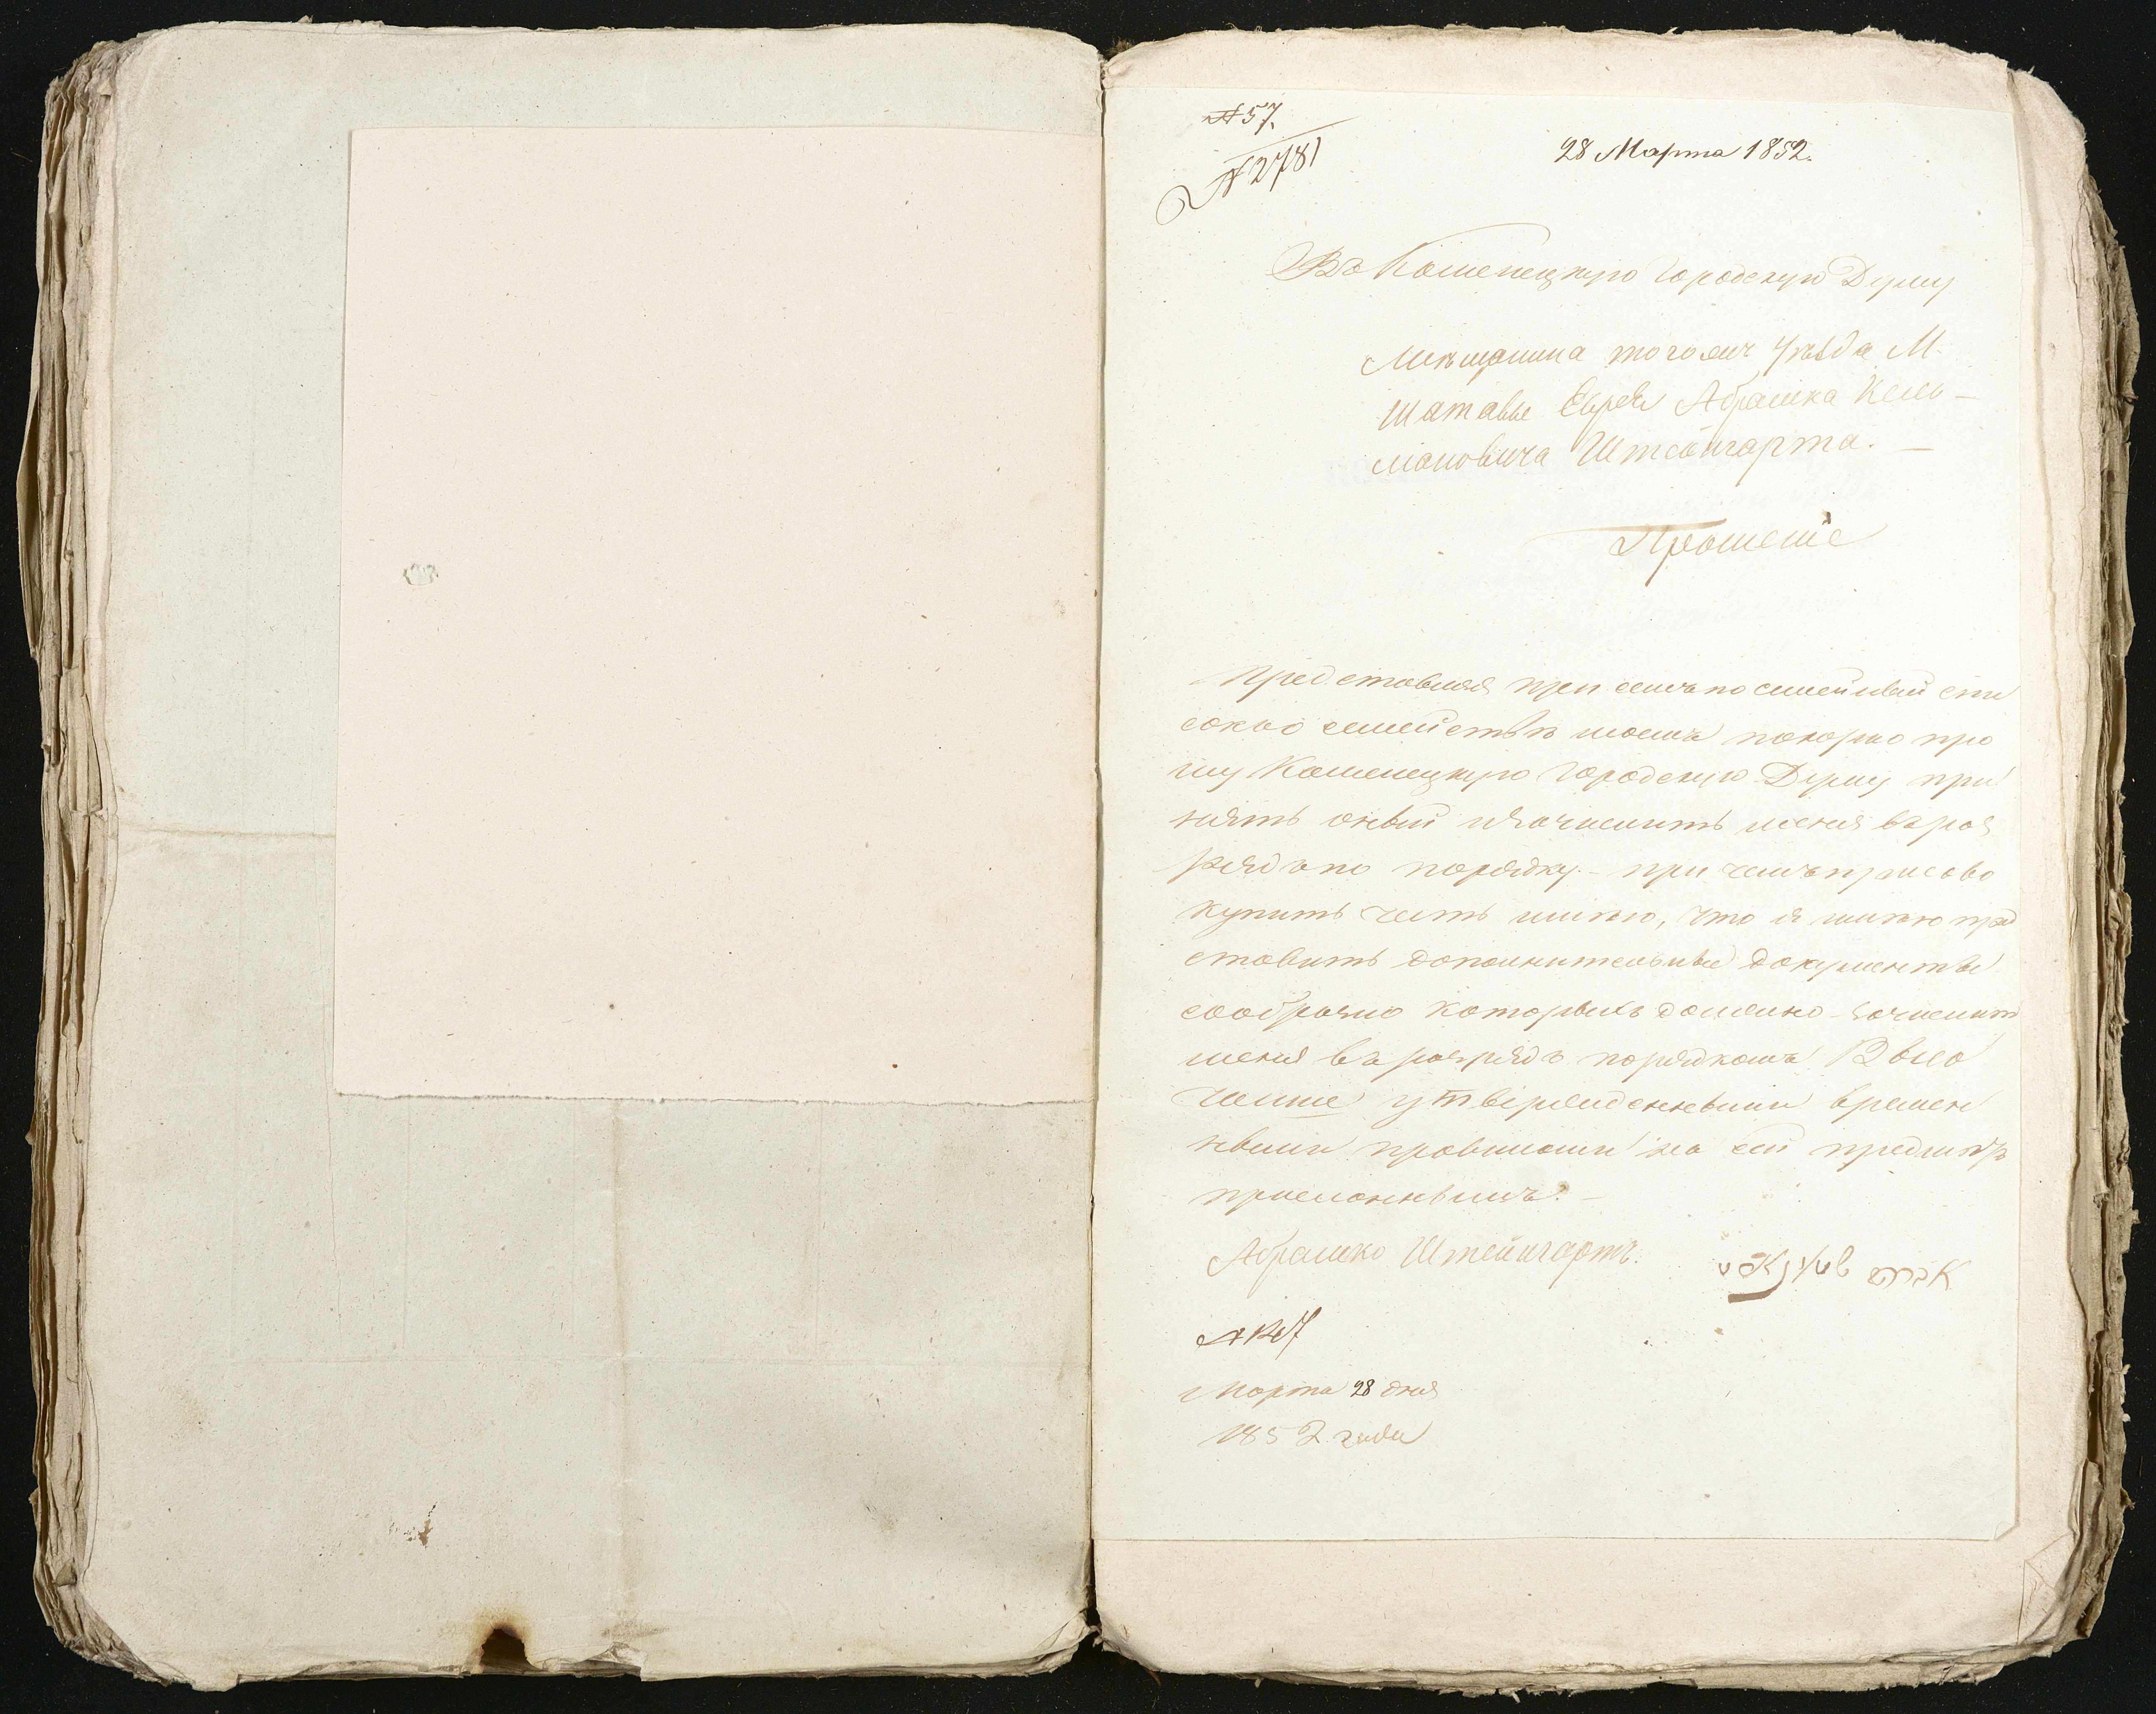 № 57.
№ 2781
28 Марта 1852.
Въ Каменецкую Городскую Думу
Мѣщанина тогожъ Уѣзда М.
Шатавы Еврея Абрашка Кель-
мановича Штейнгарта. —
Прошеніе
Представляя при семъ посемейный спи
сокъ о семействѣ моемъ покорно про
шу Каменецкую Городскую Думу при
нять оный и зачислить меня въ раз
рядъ по порядку - при чемъ присово
купить честь имѣю, что я имѣю пред
ставить дополнительные документы
сообразно которыхъ должно зачислить
меня въ разрядъ порядкомъ Высо
чайше утвержденными времен
ными правилами на сей предметъ
Абрашко Штейнгартъ.
Марта 28 дня
1852 года